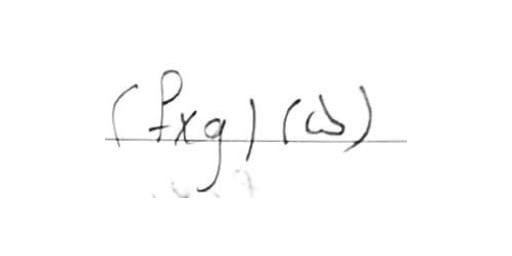 (f×g)(ω)